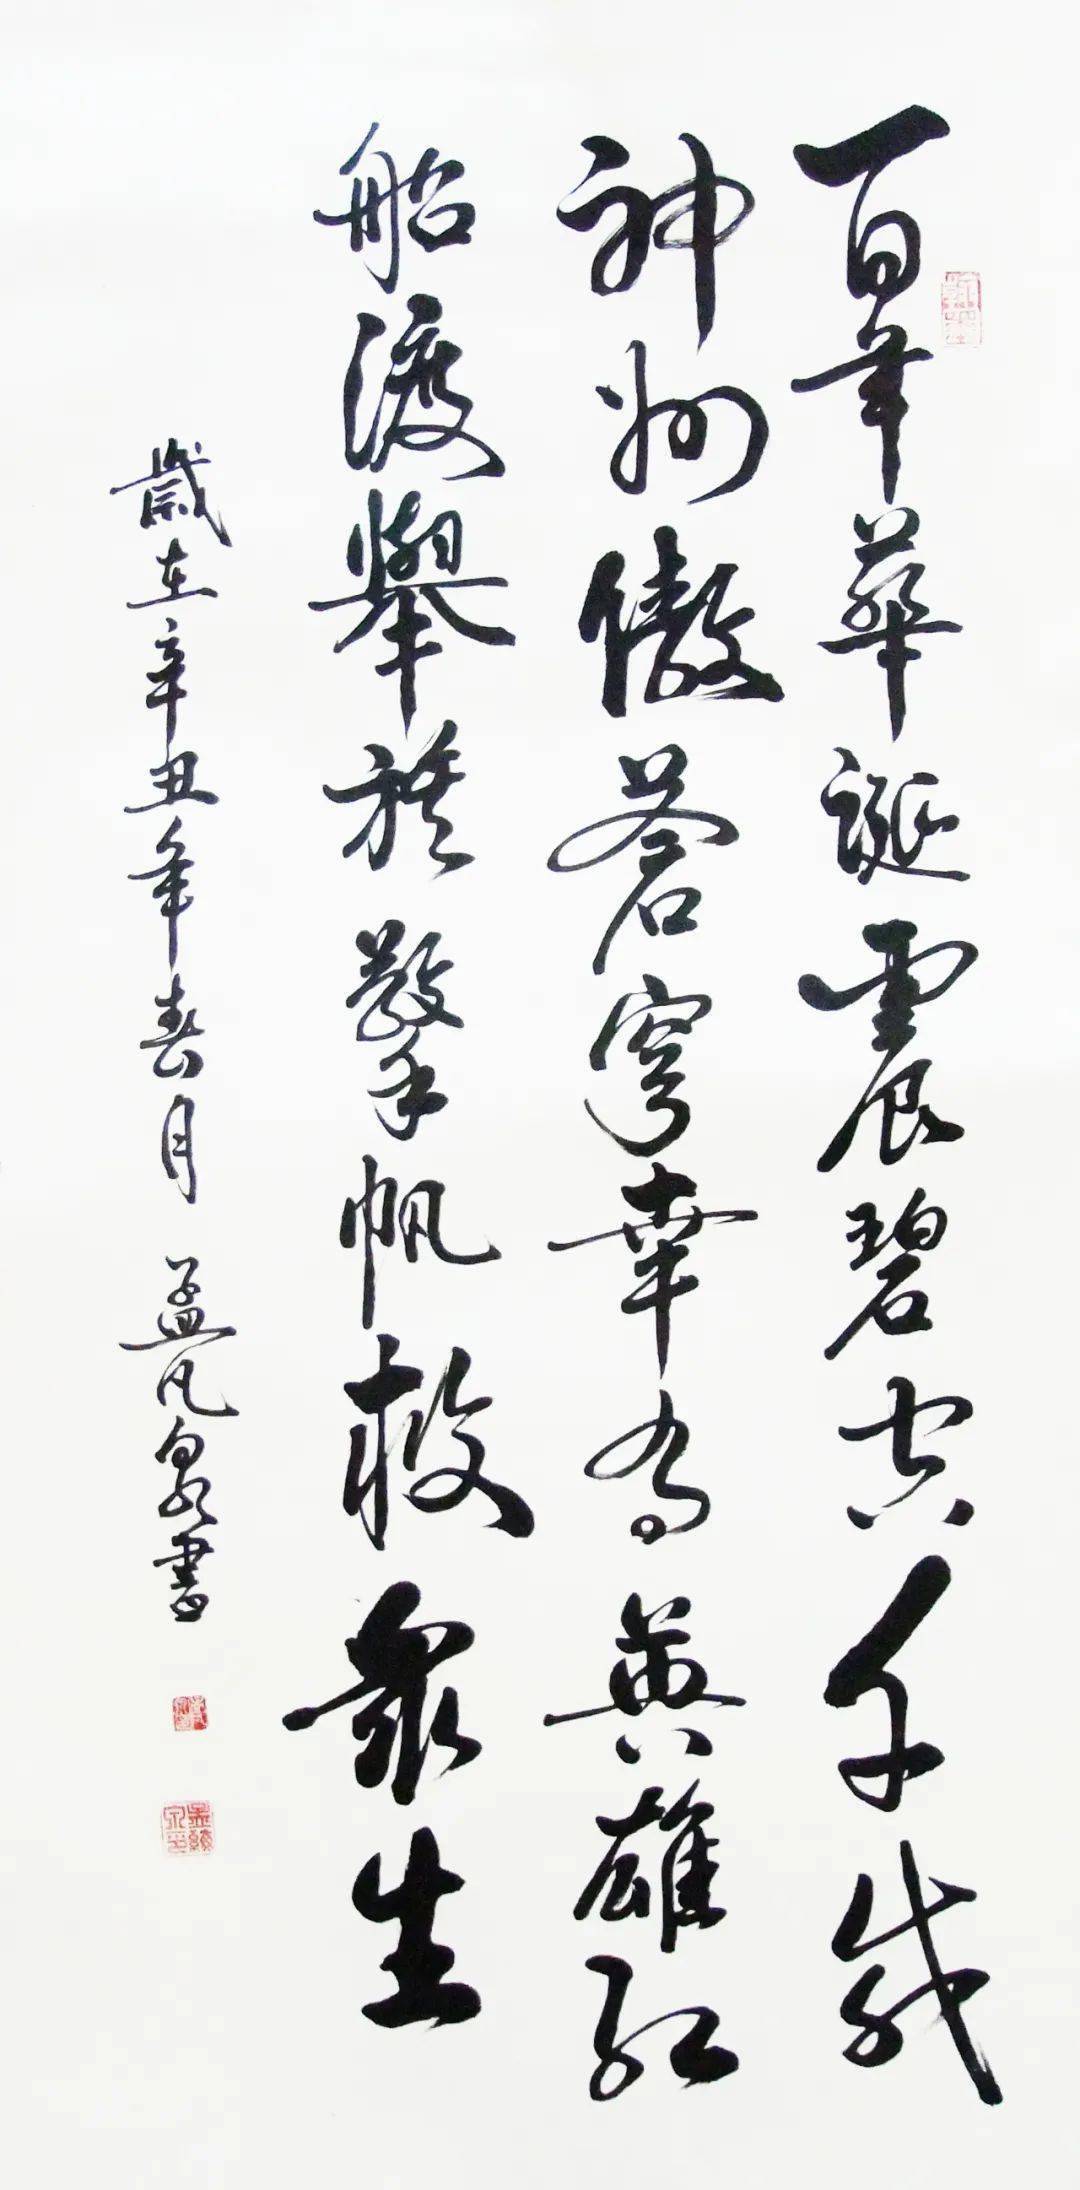 百年華誕震碧空千歲
神州傲蒼穹幸為英雄紅
船渡舉旗擎帆救衆生
歲在辛丑年春月 孟凡泉書